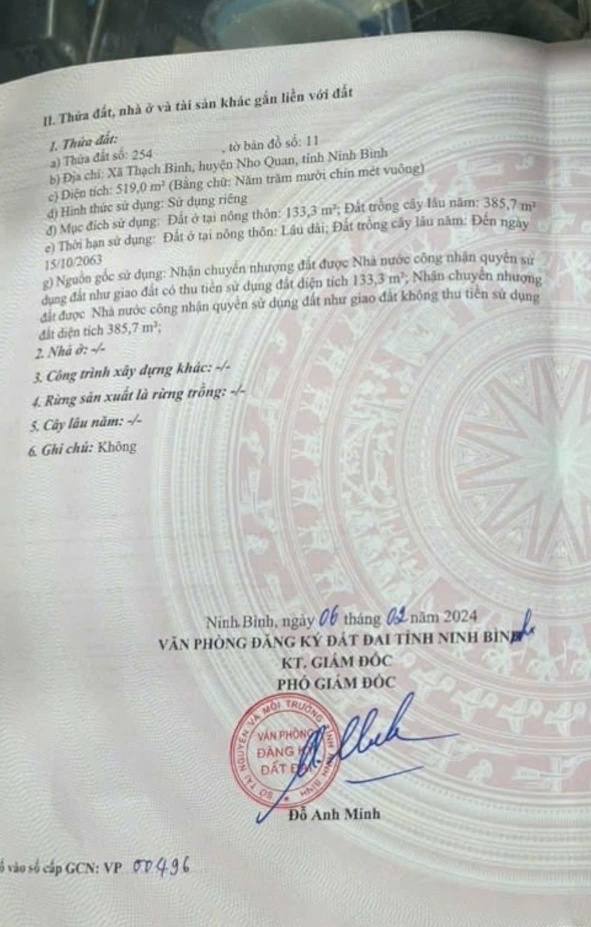 II. Thửa đất, nhà ở và tài sản khác gắn liền với đất
1. Thửa đất:
a) Thửa đất số: 254 , tờ bản đồ số: 11
b) Địa chỉ: Xã Thạch Bình, huyện Nho Quan, tỉnh Ninh Bình
c) Diện tích: 519,0 m² (Bằng chữ: Năm trăm mười chín mét vuông)
d) Hình thức sử dụng: Sử dụng riêng
đ) Mục đích sử dụng: Đất ở tại nông thôn: 133,3 m²; Đất trồng cây lâu năm: 385,7 m²
e) Thời hạn sử dụng: Đất ở tại nông thôn: Lâu dài; Đất trồng cây lâu năm: Đến ngày
15/10/2063
g) Nguồn gốc sử dụng: Nhận chuyển nhượng đất được Nhà nước công nhận quyền sử
dụng đất như giao đất có thu tiền sử dụng đất diện tích 133,3 m²; Nhận chuyển nhượng
đất được Nhà nước công nhận quyền sử dụng đất như giao đất không thu tiền sử dụng
đất diện tích 385,7 m²;
2. Nhà ở: -/-
3. Công trình xây dựng khác: -/-
4. Rừng sản xuất là rừng trồng: -/-
5. Cây lâu năm: -/-
6. Ghi chú: Không
Ninh Bình, ngày 06 tháng 02 năm 2024
VĂN PHÒNG ĐĂNG KÝ ĐẤT ĐAI TỈNH NINH BÌNH
KT. GIÁM ĐỐC
PHÓ GIÁM ĐỐC
SỞ TÀI NGUYÊN VÀ MÔI TRƯỜNG TỈNH NINH BÌNH
VĂN PHÒNG
ĐĂNG KÝ
ĐẤT ĐAI
Đỗ Anh Minh
ố vào sổ cấp GCN: VP 00496